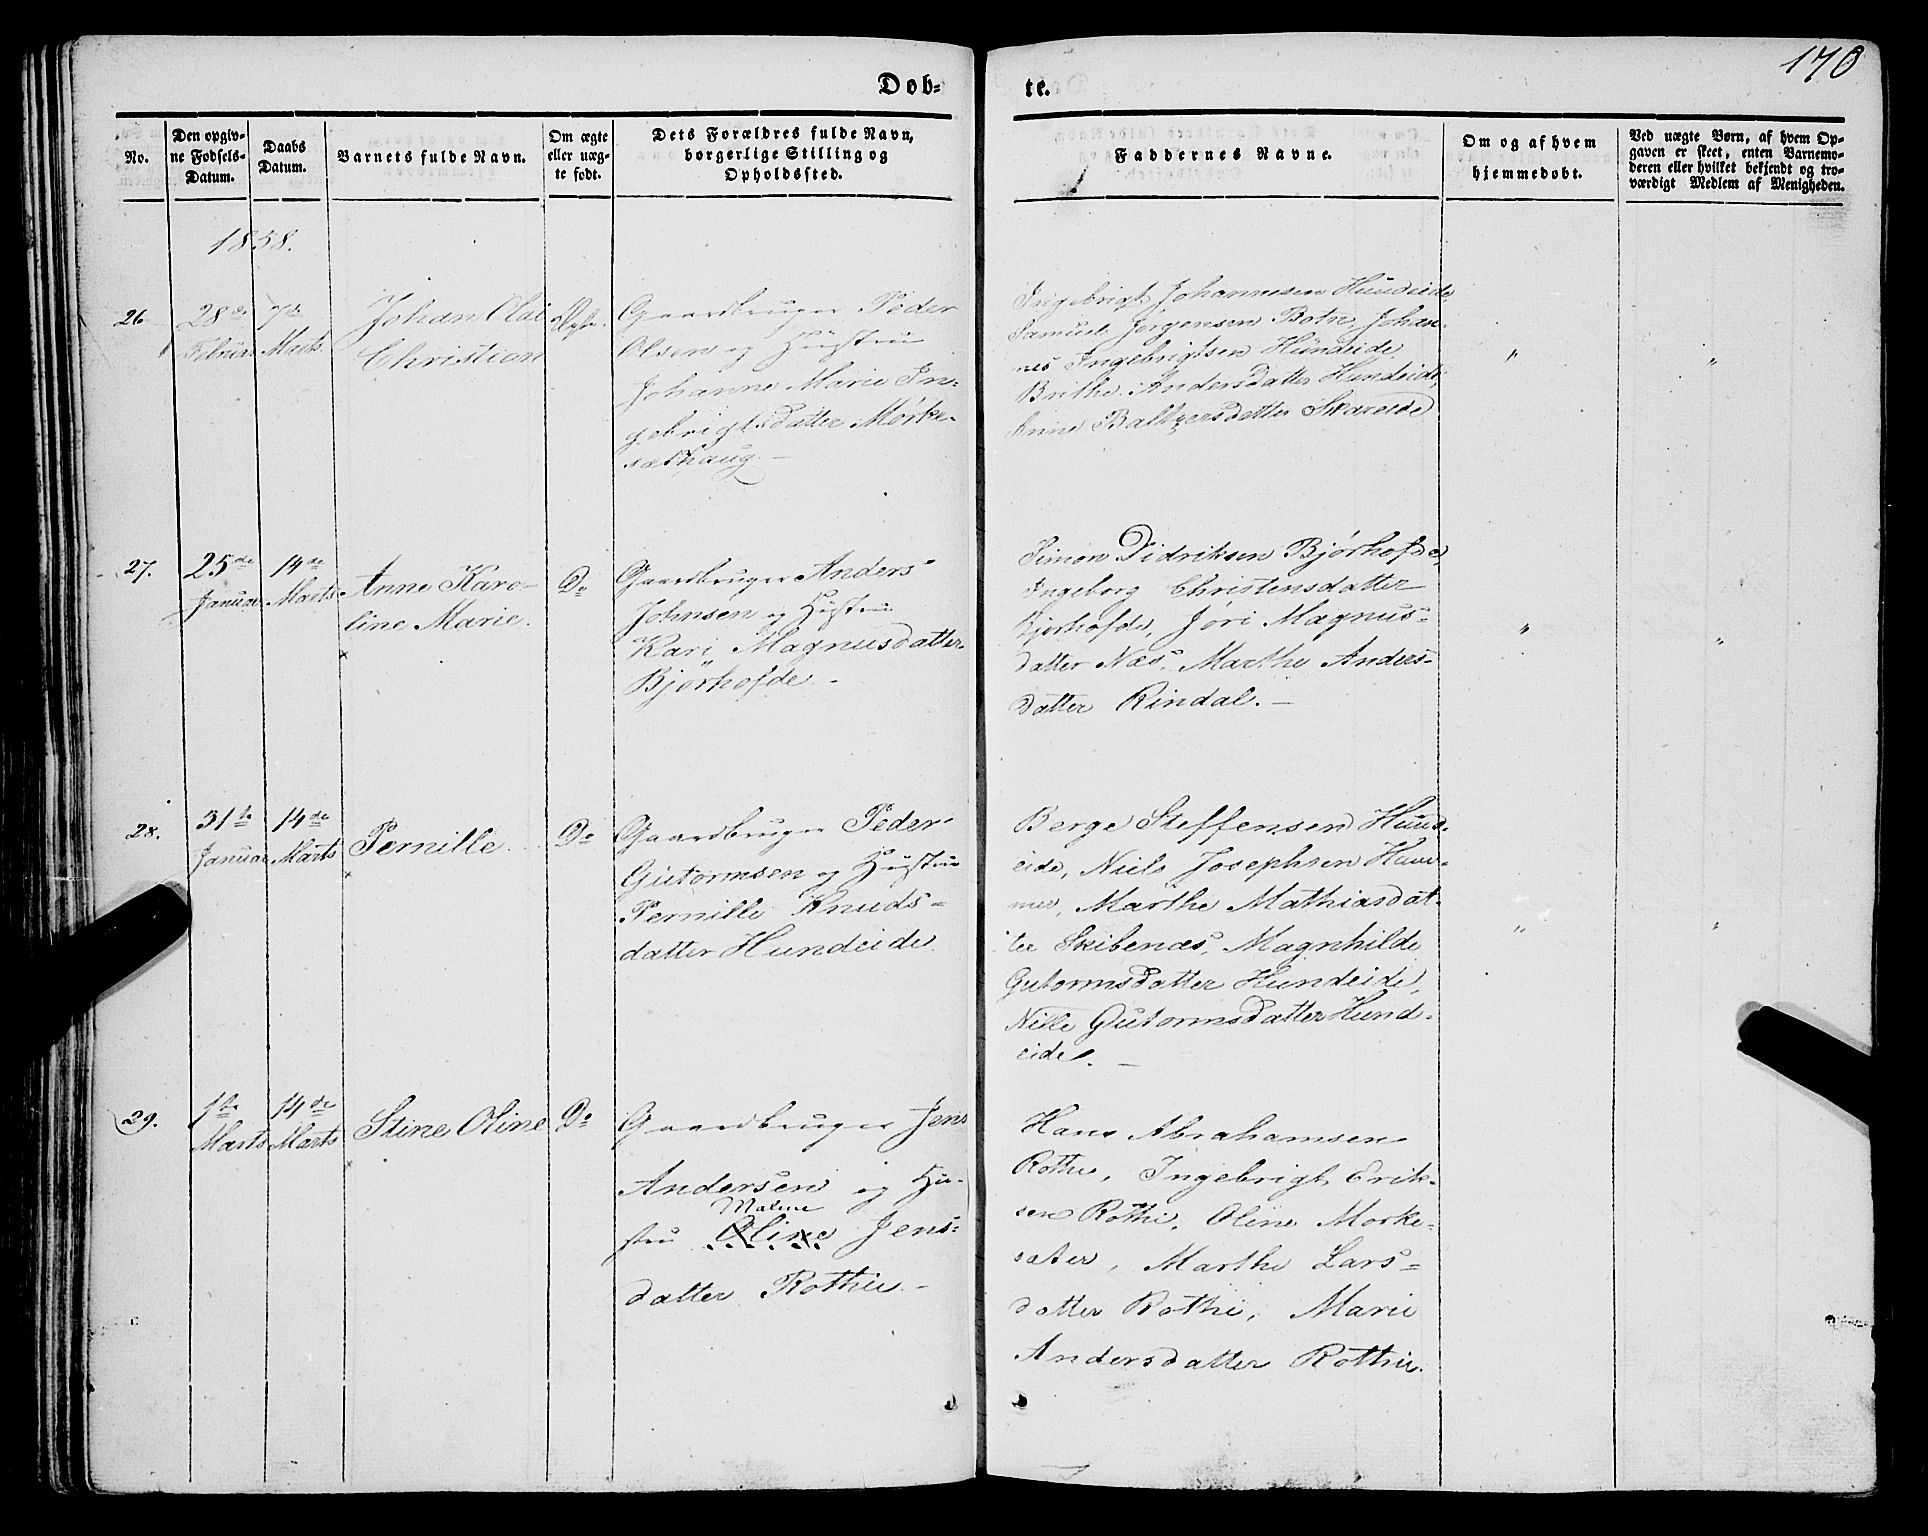 170
Dob-
te.
No.
Den opgiv-
ne Fodsels-
Datum.
Daabs
Datum.
Barnets fulde Navn.
Om ægte
eller uæg-
te fodt.
Dets Forældres fulde Navn,
borgerlige Stilling og
Opholdssted.
Faddernes Navne.
Om og af hvem
hjemmedobt.
Ved uægte Born, af hvem Op-
gaven er skeet, enten Barnemo-
deren eller hvilket bekjendt og tro-
værdigt Medlem af Menigheden.
1858.
26.
28de
Februar
7de
Marts
Johan Olai
Christian
Ægte.
Gaardbruger Peder
Olsen og Hustru
Johanne Marie In-
gebrigtsdatter Mørke-
sæthaug. -
Ingebrigt Johannesen Hundeide,
Samuel Jørgensen Botn, Johan-
nes Ingebrigtsen Hundeide,
Brithe Andersdatter Hundeide,
Anne Baltzersdatter Skareide
"
"
27.
25de
Januar
14de
Marts
Anne Karo-
line Marie.
Do
Gaardbruger Anders
Johnsen og Hustru
Kari Magnusdatter
Bjørhofde. -
Simon Didriksen Bjørhofde,
Ingeborg Christensdatter
Bjørhofde, Jøri Magnus-
datter Næs, Marthe Anders-
datter Rindal. -
"
"
28.
31te
Januar
14de
Marts
Pernille.
Do
Gaardbruger Peder
Gutormsen og Hustru
Pernille Knuds-
datter Hundeide.
Berge Steffensen Hund-
eide, Niels Josephsen Ham-
mer, Marthe Mathiasdat-
ter Skibenæs, Magnhilde
Gutormsdatter Hundeide,
Nille Gutormsdatter Hund-
eide. -
"
"
29.
1te
Marts
14de
Marts
Stine Oline
Do
Gaardbruger Jens
Andersen og Hu-
Maline
stru Oline Jens-
datter Rothie. -
Hans Abrahamsen
Rothie, Ingebrigt Erik-
sen Rothie, Oline Morke-
sæter, Marthe Lars-
datter Rothie, Marie
Andersdatter Rothie.